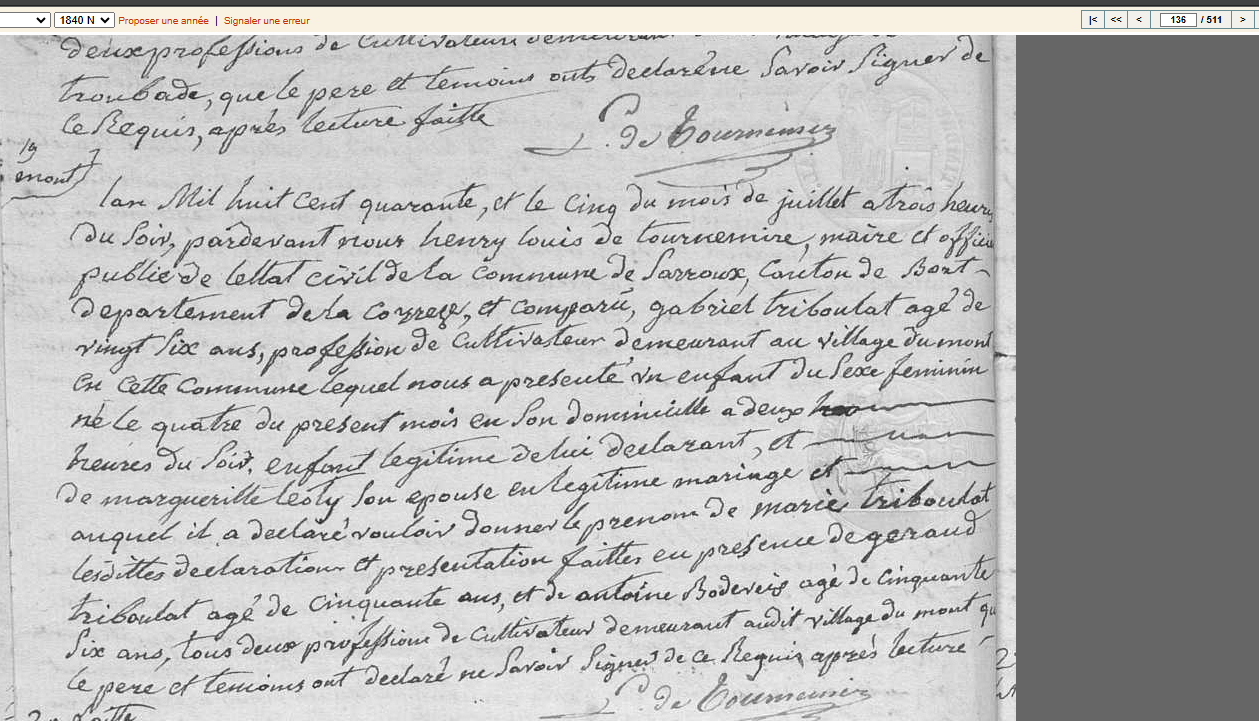 1840 N Proposer une année | Signaler une erreur |< << < 136 / 511 >
deux professions de Cultivateurs demeurant
troubade, que le pere et temoins onts declaréne Savoir Signer de
Ce Requis, aprés lecture faitte
L. de Tournemire
19
mont
lan Mil huit Cent quarante, et le Cinq du mois de juillet a trois heures
du Soir, pardevant nous henry louis de tournemire, maire et officier
public de lettat civil de la commune de Sarroux, Canton de Bort-
departement de la Correze, et comparu, gabriel triboulat agé de
vingt Six ans, profession de Cultivateur demeurant au village du mont
en Cette Commune lequel nous a presenté un enfant du Sexe feminin
né le quatre du present mois en Son dominicille a deux
heures du Soir, enfant legitime de lui declarant, et
de margueritte leoty Son epouse en legitime mariage et
auquel il a declaré vouloir donner le prenom de marie triboulat
lesdittes declarations et presentation faittes en presence de geraud
triboulat agé de cinquante ans, et de antoine Bodeveix agé de cinquante
Six ans, tous deux professions de Cultivateur demeurant audit village du mont que
le pere et temoins ont declaré ne Savoir Signer de Ce Requis aprés lecture
L. de Tournemire
faitte